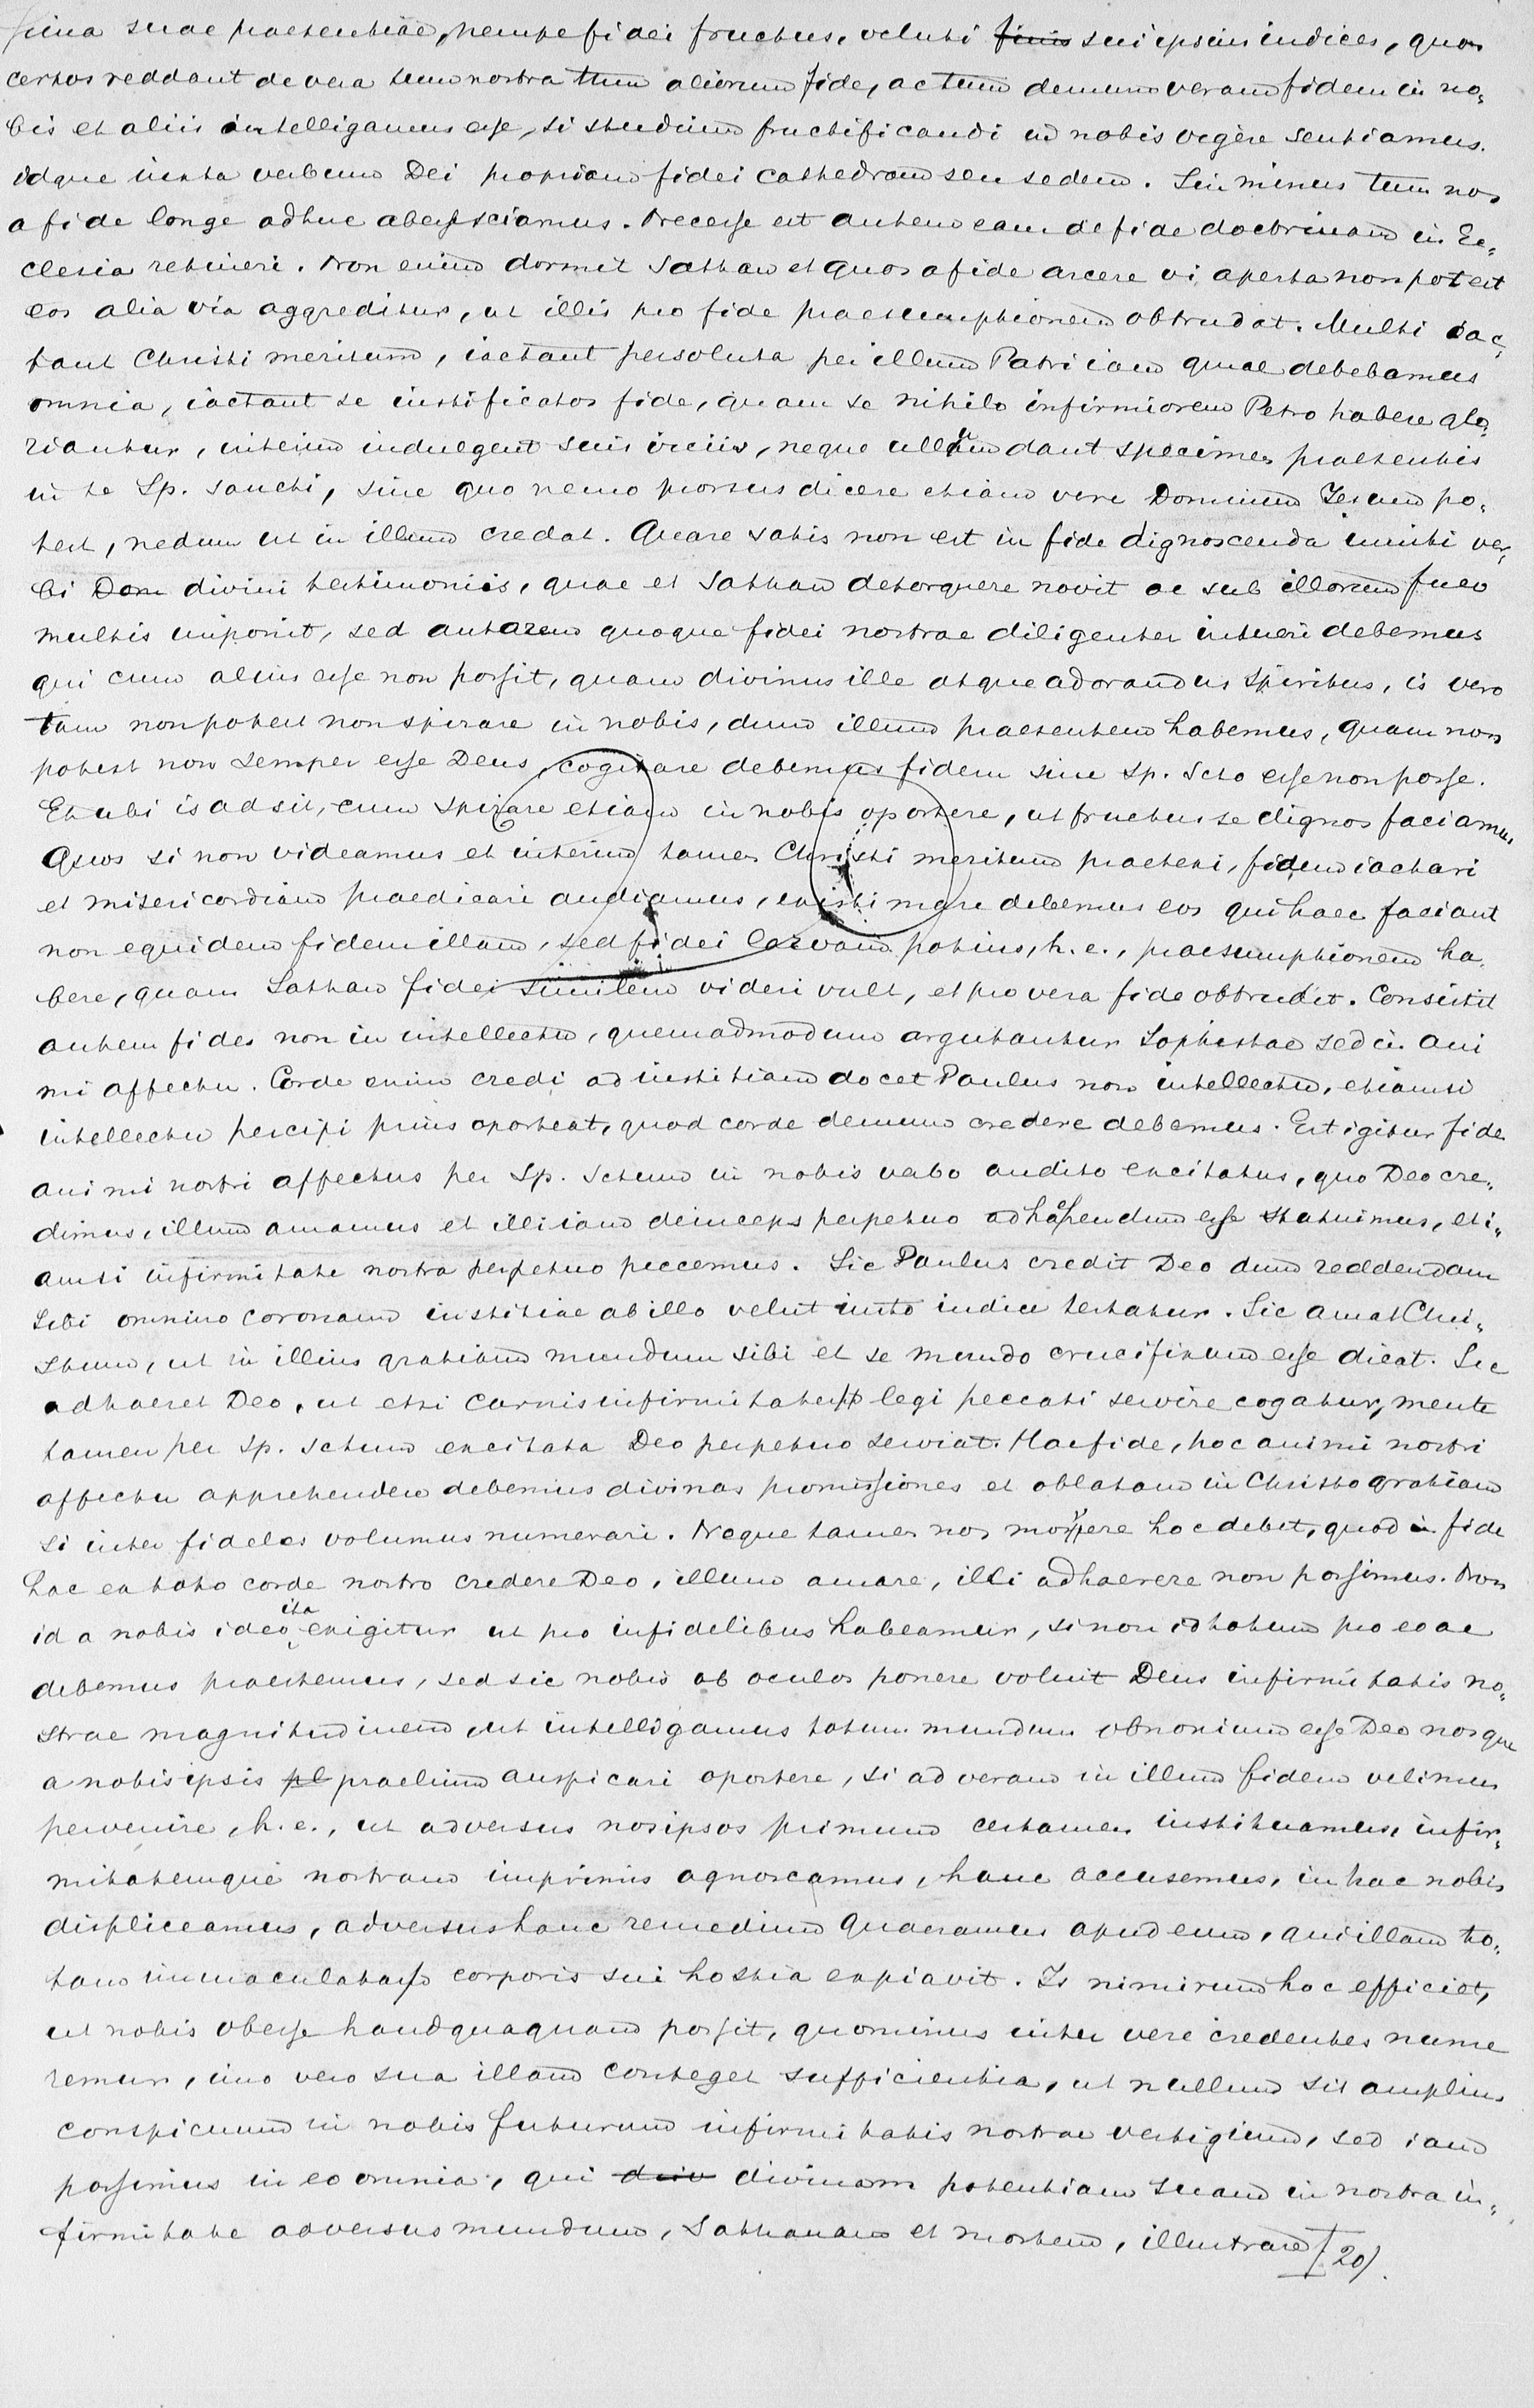 suae praesentiae, nempe fidei fructus, veluti finis sui ipsius indices, quos
certos reddant de vera tum nostra tum aliorum fide, ac tum demum veram fidem in no-
bis et aliis intelligamus esse, si studium fructificandi in nobis vigere sentiamus.
idque iuxta verbum Dei propriam fidei cathedram seu sedem. Sin minus tum nos
a fide longe adhuc abesse sciamus. Necesse est autem eam de fide doctrinam in Ec-
clesia retineri. Non enim dormit Sathan et quos a fide arcere vi aperta non potest
eos alia via aggreditur, ut illis pro fide praesumptionem obtrudat. Multi iac-
tant Christi meritum, iactant persoluta per illum Patri iam quae debebamus
omnia, iactant se iustificatos fide, quam se nihilo infirmiorem Petro habere glo-
riantur, interim indulgent suis viciis, neque ullum dant specimen praesentis
in se Sp. sancti, sine quo nemo prorsus dicere etiam vere Dominum Iesum po-
test, nedum ut in illum credat. Quare satis non est in fide dignoscenda inniti ver-
bi Dom divini testimoniis, quae et Sathan detorquere novit ac sub illorum fuco
multis imponit, sed autorem quoque fidei nostrae diligenter intueri debemus
qui cum alius esse non possit, quam divinus ille atque adorandus Spiritus, is vero
tam non potest non spirare in nobis, dum illum praesentem habemus, quam non
potest non semper esse Deus, cogitare debemus fidem sine Sp. Scto esse non posse.
Et ubi is adsit, eum spirare etiam in nobis oportere, ut fructus se dignos faciamus
Quos si non videamus et interim tamen Christi meritum praetexi, fidem iactari
et misericordiam praedicari audiamus, existimare debemus eos qui haec faciant
non equidem fidem illam, sed fidei larvam potius, h. e., praesumptionem ha-
bere, quam Sathan fidei similem videri vult, et pro vera fide obtrudit. Consistit
autem fides non in intellectu, quemadmodum argutantur Sophistae sed in ani
mi affectu. Corde enim credi ad iustitiam docet Paulus non intellectu, etiamsi
intellectu percipi prius oporteat, quod corde demum credere debemus. Est igitur fides
animi nostri affectus per Sp. Sctum in nobis verbo audito excitatus, quo Deo cre-
dimus, illum amamus et illi iam deinceps perpetuo adhaerendum esse statuimus, eti-
amsi infirmitate nostra perpetuo peccemus. Sic Paulus credit Deo dum reddendam
sibi omnino coronam iustitiae ab illo velut iusto iudice testatur. Sic amat Chri-
stum, ut in illius gratiam mundum sibi et se mundo crucifixum esse dicat. Sic
adhaeret Deo, ut etsi carnis infirmitate legi peccati servire cogatur, mente
tamen per Sp. Sctum excitata Deo perpetuo serviat. Hac fide, hoc animi nostri
affectu apprehendere debemus divinas promissiones et oblatam in Christo gratiam
si inter fideles volumus numerari. Neque tamen nos movere hoc debet, quod in fide
hac ex toto corde nostro credere Deo, illum amare, illi adhaerere non possimus. Non
id a nobis ideo ita exigitur ut pro infidelibus habeamur, si non id totum pro eo ac
debemus praestemus, sed sic nobis ob oculos ponere voluit Deus infirmitatis no-
strae magnitudinem, ut intelligamus totum mundum obnoxium esse Deo nosque
a nobis ipsis pl praelium auspicari oportere, si ad veram in illum fidem velimus
pervenire, h. e., ut adversus nos ipsos primum certamen instituamus, infir-
mitatemque nostram inprimis agnoscamus, hanc accusemus, in hac nobis
displiceamus, adversus hanc remedium quaeramus apud eum, qui illam to-
tam immaculata corporis sui hostia expiavit. Is nimirum hoc efficiet,
ut nobis obesse haudquaquam possit, quominus inter vere credentes nume
remur, imo vero sua illam conteget sufficientia, ut nullum sit amplius
conspicuum in nobis futurum infirmitatis nostrae vestigium, sed iam
possimus in eo omnia, qui divinam potentiam suam in nostra in-
firmitate adversus mundum, Sathanam et mortem, illustrare [20)